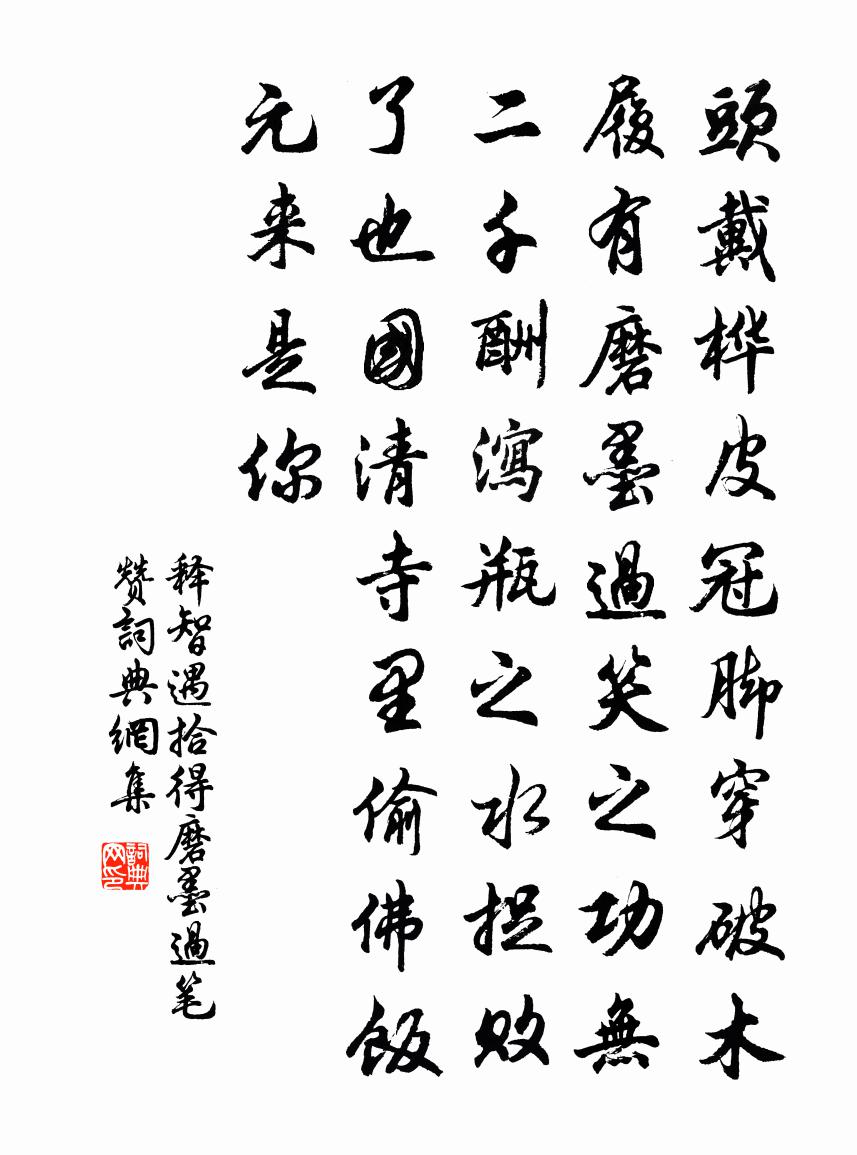 頭戴桦皮冠脚穿破木
履有磨墨過笑之功無
二千酬瀉瓶之水捉败
了也國清寺里偷佛飯
元来是你
释智遇拾得磨墨過笔
赞詞典網集
詞典网印